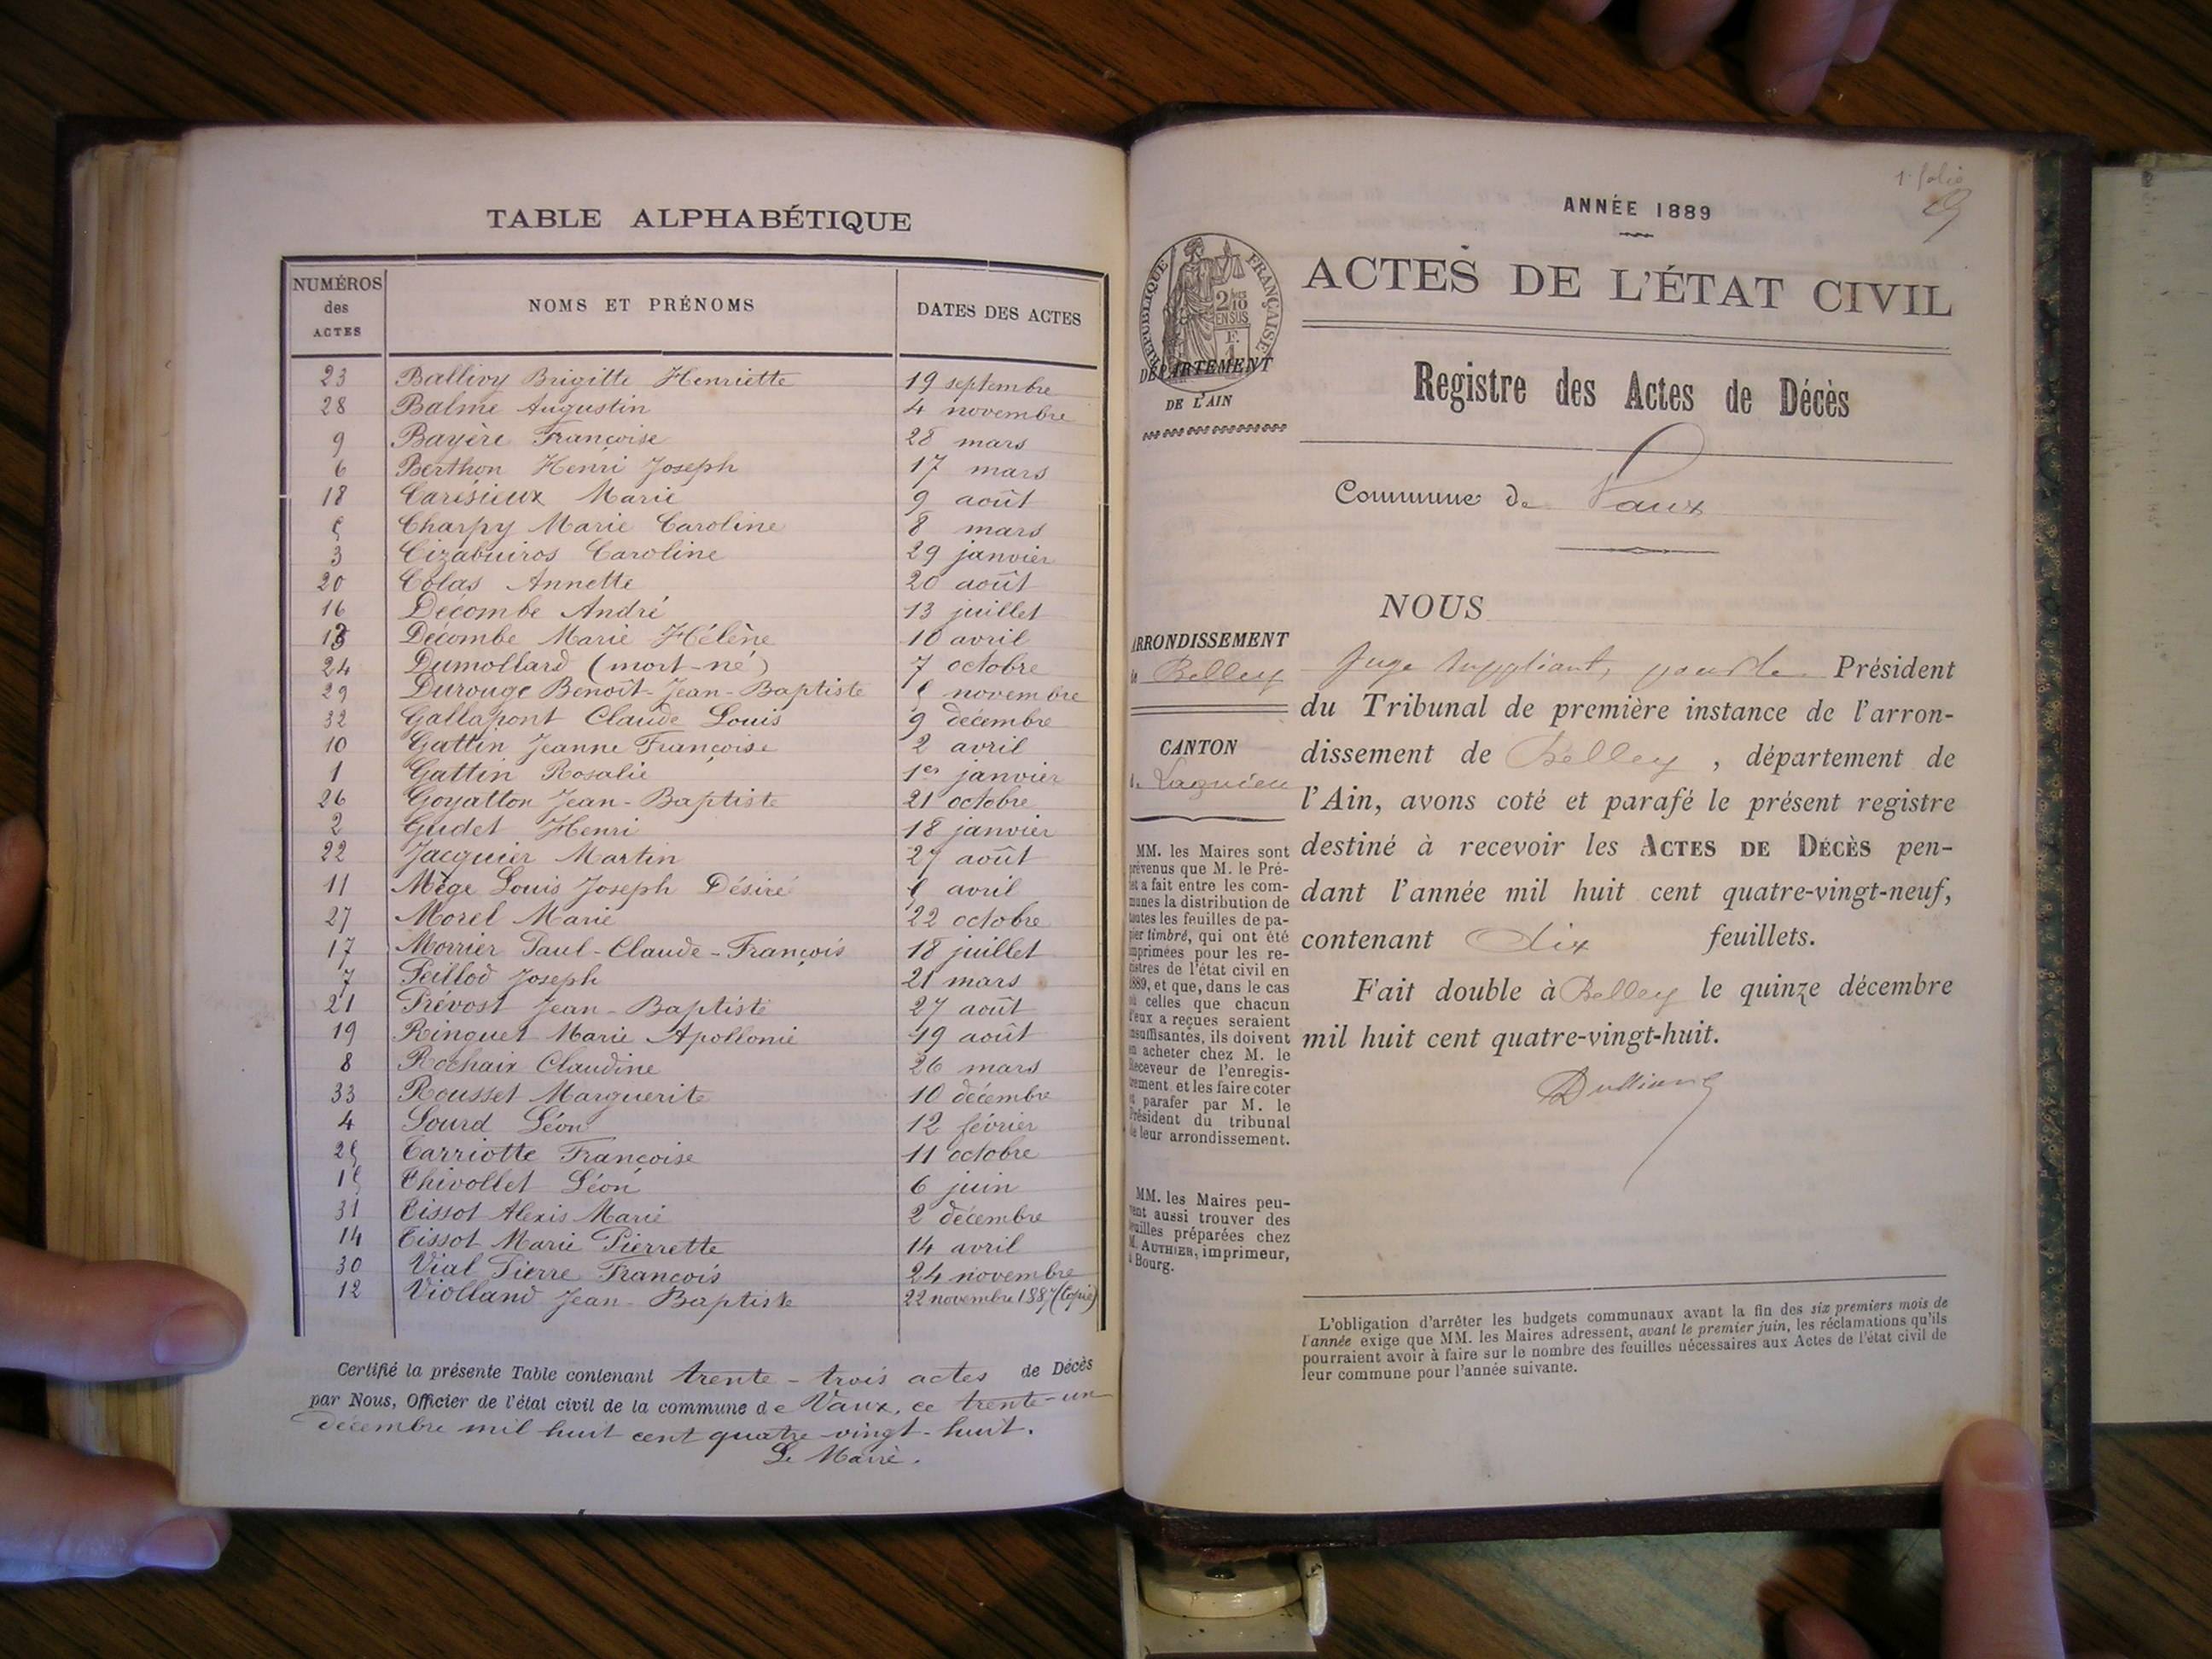 TABLE ALPHABÉTIQUE
NUMÉROS des ACTES NOMS ET PRÉNOMS DATES DES ACTES
23 Ballivy Brigitte Henriette 19 septembre
28 Balme Augustin 4 novembre
9 Bayère Françoise 28 mars
6 Berthon Henri Joseph 17 mars
18 Carésieux Marie 9 août
5 Charpy Marie Caroline 8 mars
3 Cizabuiros Caroline 29 janvier
20 Colas Annette 20 août
16 Décombe André 13 juillet
13 Décombe Marie Hélène 10 avril
24 Dumollard (mort-né) 7 octobre
29 Durouge Benoît-Jean-Baptiste 5 novembre
32 Gallapont Claude Louis 9 décembre
10 Gattin Jeanne Françoise 2 avril
1 Gattin Rosalie 1er janvier
26 Goyatton Jean-Baptiste 21 octobre
2 Gudet Henri 18 janvier
22 Jacquier Martin 27 août
11 Mège Louis Joseph Désiré 5 avril
27 Morel Marie 22 octobre
17 Morrier Paul-Claude-François 18 juillet
7 Peillod Joseph 21 mars
21 Prévost Jean-Baptiste 27 août
19 Ringuet Marie Apollonie 19 août
8 Rochaix Claudine 26 mars
33 Rousset Marguerite 10 décembre
4 Sourd Léon 12 février
25 Tarriotte Françoise 11 octobre
15 Thivollet Léon 6 juin
31 Tissot Alexis Marie 2 décembre
14 Tissot Marie Pierrette 14 avril
30 Vial Pierre François 24 novembre
12 Violland Jean-Baptiste 22 novembre 1887 (Copie)
Certifié la présente Table contenant trente-trois actes de Décès
par Nous, Officier de l'état civil de la commune de Vaux, ce trente-un
décembre mil huit cent quatre-vingt-huit.
Le Maire.
1er folio
ANNÉE 1889
ACTES DE L'ÉTAT CIVIL
RÉPUBLIQUE FRANÇAISE
2/10 EN SUS
F. 1
DÉPARTEMENT
DE L'AIN
Registre des Actes de Décès
Commune de Vaux
ARRONDISSEMENT
de Belley
CANTON
de Lagnieu
MM. les Maires sont
prévenus que M. le Pré-
fet a fait entre les com-
munes la distribution de
toutes les feuilles de pa-
pier timbré, qui ont été
imprimées pour les re-
gistres de l'état civil en
1889, et que, dans le cas
où celles que chacun
d'eux a reçues seraient
insuffisantes, ils doivent
en acheter chez M. le
Receveur de l'enregis-
trement et les faire coter
et parafer par M. le
Président du tribunal
de leur arrondissement.
MM. les Maires peu-
vent aussi trouver des
feuilles préparées chez
M. AUTHIER, imprimeur,
à Bourg.
NOUS
Juge suppléant, pour le Président
du Tribunal de première instance de l'arron-
dissement de Belley, département de
l'Ain, avons coté et parafé le présent registre
destiné à recevoir les ACTES DE DÉCÈS pen-
dant l'année mil huit cent quatre-vingt-neuf,
contenant dix feuillets.
Fait double à Belley le quinze décembre
mil huit cent quatre-vingt-huit.
L'obligation d'arrêter les budgets communaux avant la fin des six premiers mois de
l'année exige que MM. les Maires adressent, avant le premier juin, les réclamations qu'ils
pourraient avoir à faire sur le nombre des feuilles nécessaires aux Actes de l'état civil de
leur commune pour l'année suivante.